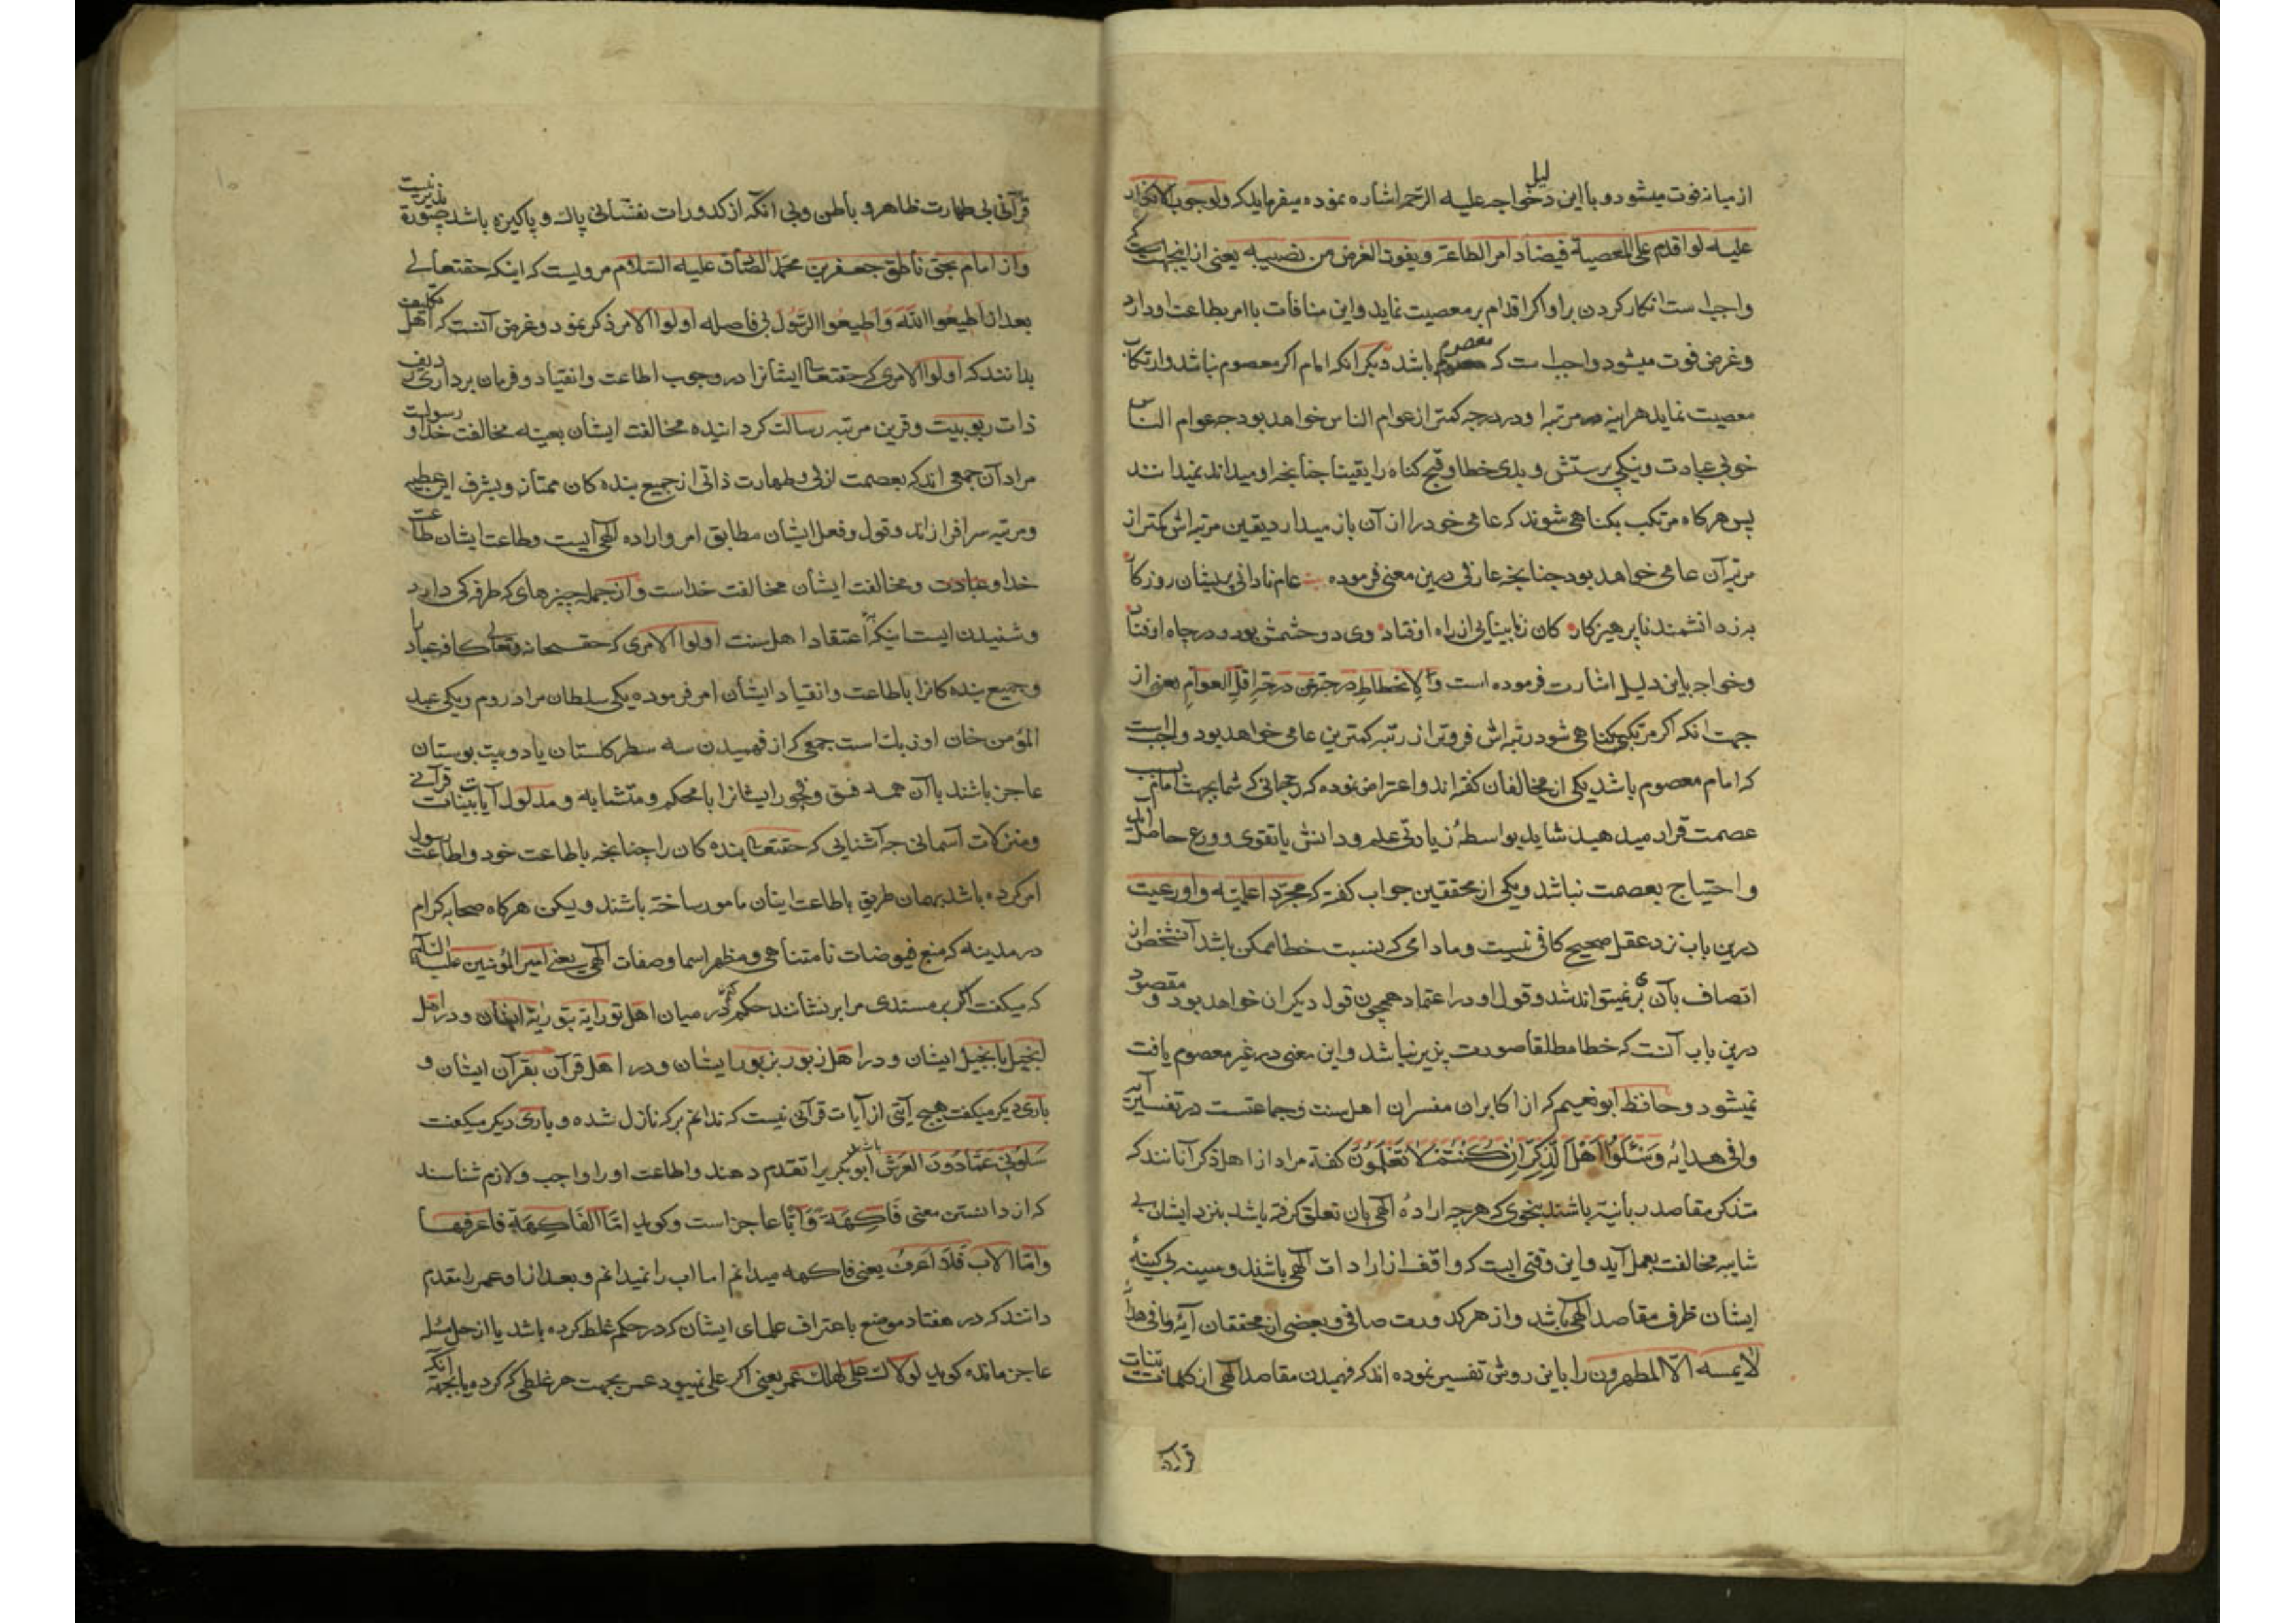 از میانه فوت میشود و با این دلیل خواجه علیه الرحمه اشاره نموده میفرماید که ولوجوب الانکار
علیه لو اقدم علی المعصیة فیضاد امر الطاعة و یفوت الغرض من نصیبه یعنی از اینجهت که
واجب است انکار کردن بر او اکر اقدام بر معصیت نماید و این منافات با امر بطاعت او دارد
و غرض فوت میشود و واجب است که معصوم باشد دیکر انکه امام اکر معصوم نباشد و ارتکاب
معصیت نماید هراینه مرتبه او در درجه کمتر از عوام الناس خواهد بود جه عوام الناس
خوبی عبادت و نیکی پرستش و بدی خطا و قبح کناه را یقینا جنانجه او میداند نمیدانند
پس هرکاه مرتکب بکناهی شوند که عامی خود را از آن باز میدارد یقین مرتبه اش کمتر از
مرتبه آن عامی خواهد بود جنانجه عارفی درین معنی فرموده عام نادانی پریشان روزکار
به ز دانشمند ناپرهیزکار کان ز نابینایی از راه اوفتاد وی دو جشمش بود و در جاه اوفتاد
و خواجه باین دلیل اشارت فرموده است و لانحطاط درجته عن درجة اقل العوام یعنی از
جهت انکه اکر مرتکب کناهی شود رتبه اش فروتر از رتبه کمترین عامی خواهد بود و واجب است
که امام معصوم باشد یکی از مخالفان کفته اند و اعتراض نموده که رجحانی که شما بجهت امام بسبب
عصمت قرار میدهید شاید بواسطهٔ زیادتی علم و دانش یا تقوی و ورع حاصل آید
و احتیاج بعصمت نباشد و یکی از محققین جواب کفته که مجرد اعلمیته و اورعیت
درین باب نزد عقل صحیح کافی نیست و مادامی که بنسبت خطا ممکن باشد آنشخص از
اتصاف بآن بری نمیتواند شد و قول او در اعتماد همچون قول دیکران خواهد بود و مقصود
درین باب آنست که خطا مطلقا صورت پذیر نباشد و این معنی در غیر معصوم یافت
نمیشود و حافظ ابو نعیم که از اکابران مفسران اهل سنت و جماعتست در تفسیر آیه
وافی هدایه وسئلوا اهل الذکر ان کنتم لا تعلمون کفته مراد از اهل ذکر آنانند که
متذکر مقاصد ربانیه باشند بنحوی که هرجه ارادهٔ الهی بان تعلق کرفته باشد بنزد ایشان بی
شایبه مخالفت بعمل آید و این وقتی است که واقف از ارادات الهی باشند و سینه بی کینهٔ
ایشان ظرف مقاصد الهی باشد و از هر کدورت صافی و بعضی از محققان آیه وافی هدایه
لا یمسه الا المطهرون را باین روش تفسیر نموده اند که فهمیدن مقاصد الهی از کلمات بینات
قرآنی
قرآنی بی طهارت ظاهر و باطن و بی انکه از کدورات نفسانی پاک و پاکیزه باشد صورة پذیر نیست
و از امام بحق ناطق جعفر بن محمد الصادق علیه السلام مرویست که اینکه حقتعالی
بعد از اطیعوا الله و اطیعوا الرسول بی فاصله اولوا الامر ذکر نمود و غرض آنست که اهل تکلیف
بدانند که اولوا الامری که حقتعالی ایشانرا در وجوب اطاعت و انقیاد و فرمان برداری ردیف
ذات ربوبیت و قرین مرتبه رسالت کردانیده مخالفت ایشان بعینه مخالفت خدا و رسولست
مراد آن جمعی اند که بعصمت ازلی و طهارت ذاتی از جمیع بنده کان ممتاز و بشرف این عطیه
و مرتبه سرافراز اند و قول و فعل ایشان مطابق امر و اراده الهی است و طاعت ایشان طاعت
خدا و عبادت و مخالفت ایشان مخالفت خداست و از جمله جیزهای که طرفه کی دارد
و شنیدن است اینکه اعتقاد اهل سنت اولوا الامری که حق سبحانه و تعالی کافه عباد را
و جمیع بنده کانرا باطاعت و انقیاد ایشان امر فرموده یکی سلطان مراد روم و یکی عبد
المؤمن خان اوزبک است جمعی که از فهمیدن سه سطر کلستان یا دو بیت بوستان
عاجز باشند با آن همه فسق و فجور ایشانرا با محکم و متشابه و مدلول آیات بینات قرآنی
و منزلات آسمانی جه آشنایی که حقتعالی بنده کان را جنانجه باطاعت خود و اطاعت رسول
امر کرده باشد بهمان طریق باطاعت اینان مامور ساخته باشند و یکن هرکاه صحابه کرام
در مدینه که منبع فیوضات نامتناهی و مظهر اسما و صفات الهی یعنی امیر المؤمنین علیه السلام
که میکفت اکر بر مسندی مرا برنشانند حکم کنم در میان اهل توراة بتوریة ایشان و در اهل
انجیل بانجیل ایشان و در اهل زبور بزبور ایشان و در اهل قرآن بقرآن ایشان و
باری دیکر میکفت هیج آیتی از آیات قرآنی نیست که ندانم بر که نازل شده و باری دیکر میکفت
سلونی عما دون العرش باشد ابو بکر را تقدم دهند و اطاعت او را واجب و لازم شناسند
که از دانستن معنی فاکهة و ابا عاجز است و کوید اما الفاکهة فاعرفها
و اما الاب فلا اعرف یعنی فاکهه میدانم اما اب را نمیدانم و بعد از او عمر را مقدم
دانند که در هفتاد موضع باعتراف علمای ایشان که در حکم غلط کرده باشد یا از حل مسئله
عاجز مانده کوید لولا علی لهلک عمر یعنی اکر علی نمیبود عمر بجهت هر غلطی که کرده یا بجهة انکه